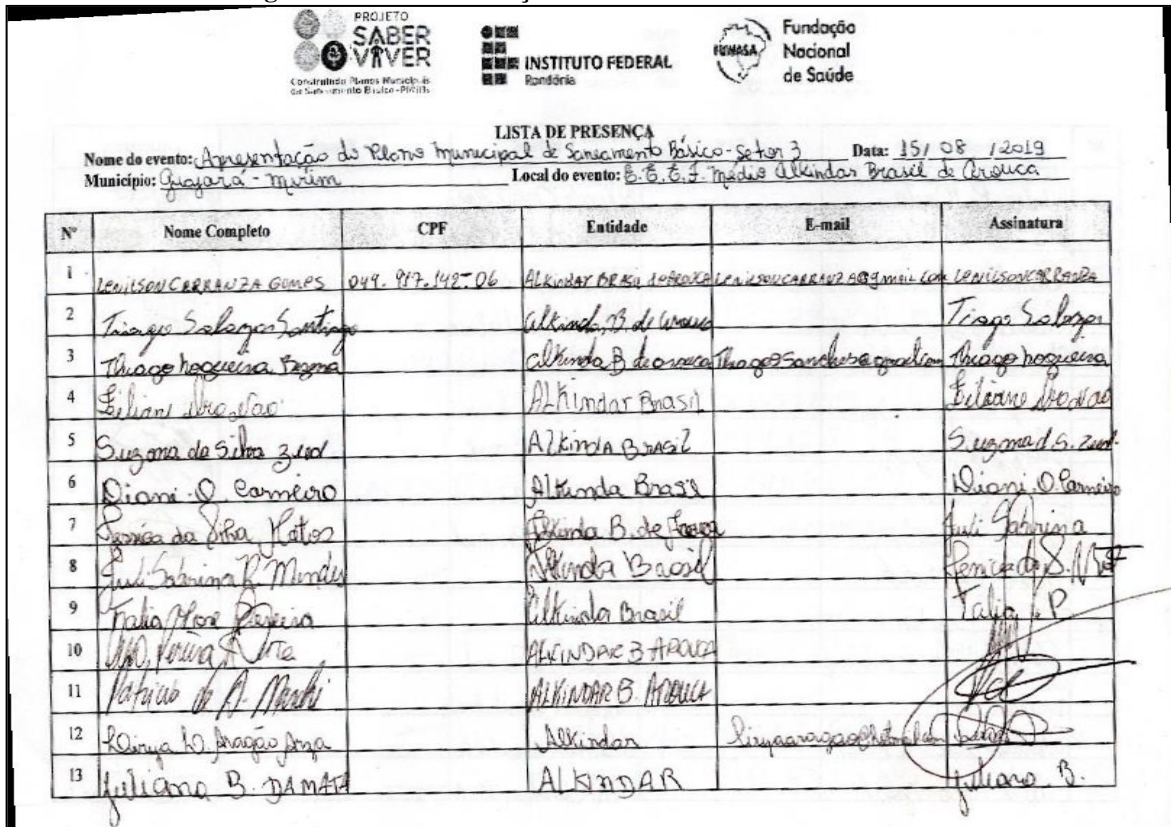 PROJETO
SABER
VIVER
Construindo Planos Municipais
de Saneamento Básico
INSTITUTO FEDERAL
Rondônia
FUNASA
Fundação
Nacional
de Saúde
LISTA DE PRESENÇA
Nome do evento: Apresentação do Plano Municipal de Saneamento Básico - Setor 3 Data: 15/08/2019
Município: Guajará-mirim Local do evento: E.E.E.F. Médio Alkindar Brasil de Arouca
Nº Nome Completo CPF Entidade E-mail Assinatura
1 LENILSON CARRANZA GOMES 049.917.142-06 ALKINDAR BRASIL DE AROUCA LENILSONCARRANZA@gmail.com LENILSON CARRANZA
2 Tiago Salazar Santiago Alkinda, B. de Arouca Tiago Salazar
3 Thiago nogueira Alkinda B de arouca Thiago nogueira
4 ALkindar Brasil
5 Suzana da Silva ALKINDA BRASIL Suzana d S.
6 Diani O. Carneiro Alkinda Brasil Diani O. Carneiro
7 Jessica da Silva Matos Alkinda B. de Juli Sabrina
8 Juli Sabrina R. Mendes Alkinda Brasil Jessica da S.
9 Talia Pereira Alkinda Brasil Talia P
10 ALKINDAR B AROUCA
11 Patricio de A. ALKINDAR B. AROUCA
12 Aragão Alkindar
13 Juliana B. DAMATA ALKINDAR Juliana B.